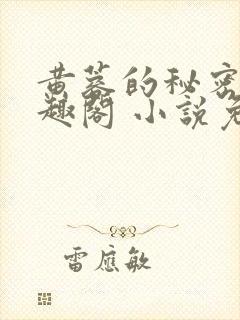 黄墓的秘密
趣阁 小说免
雷应敏